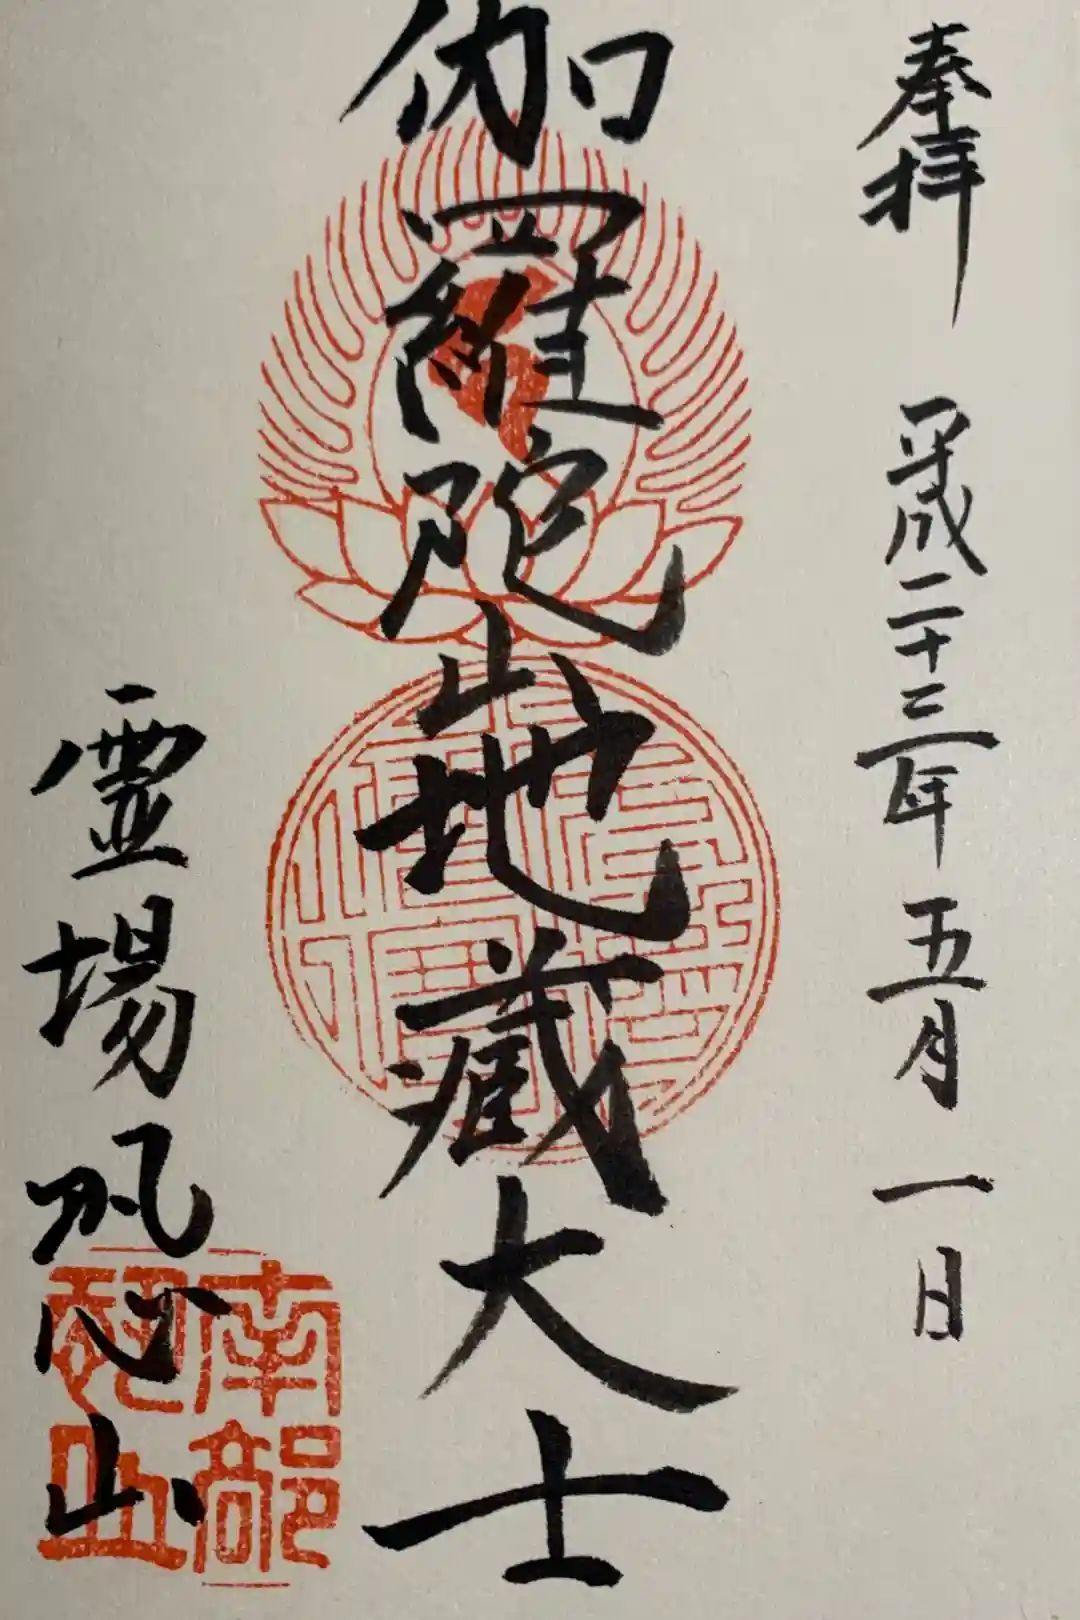 奉拝 平成二十三年五月一日
伽羅陀山地蔵大士
霊場恐山
南部
恐山